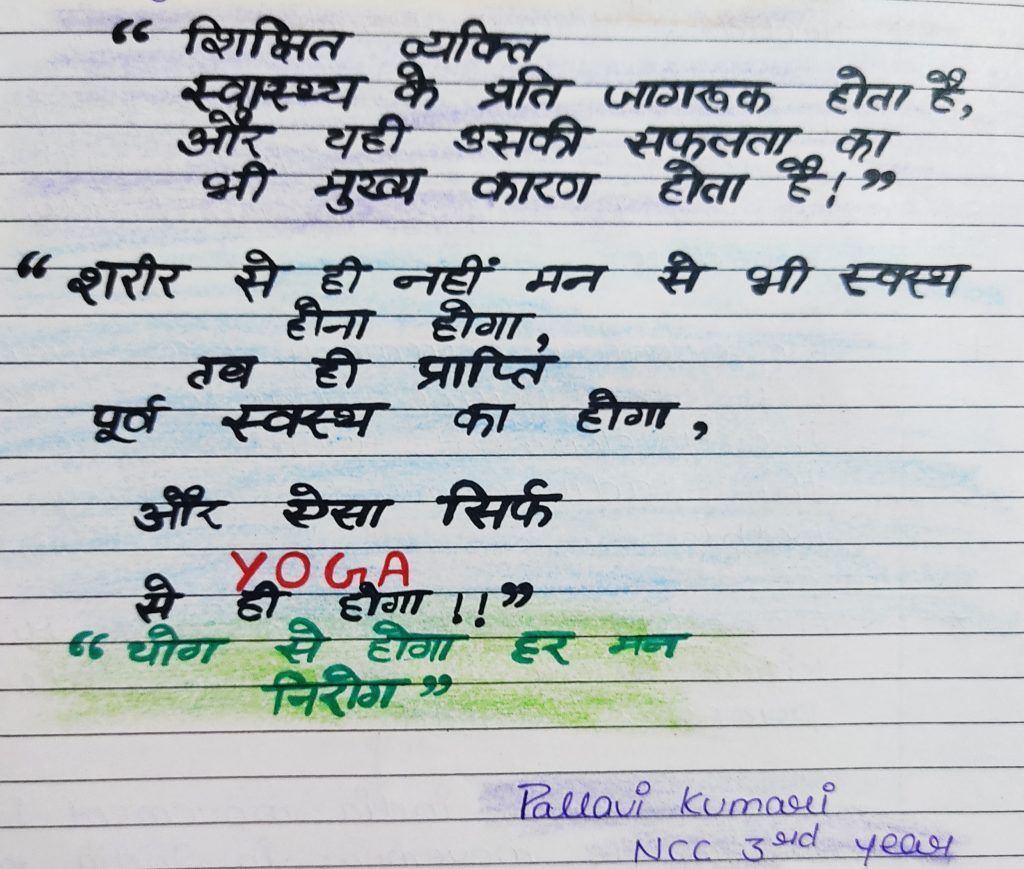 “ शिक्षित व्यक्ति
स्वास्थ्य के प्रति जागरूक होता है,
और यही उसकी सफलता का
भी मुख्य कारण होता है! ”
“ शरीर से ही नहीं मन से भी स्वस्थ
होना होगा,
तब ही प्राप्ति
पूर्व स्वस्थ का होगा,
और ऐसा सिर्फ
YOGA
से ही होगा !! ”
“ योग से होगा हर मन
निरोग ”
Pallavi Kumari
NCC 3rd year